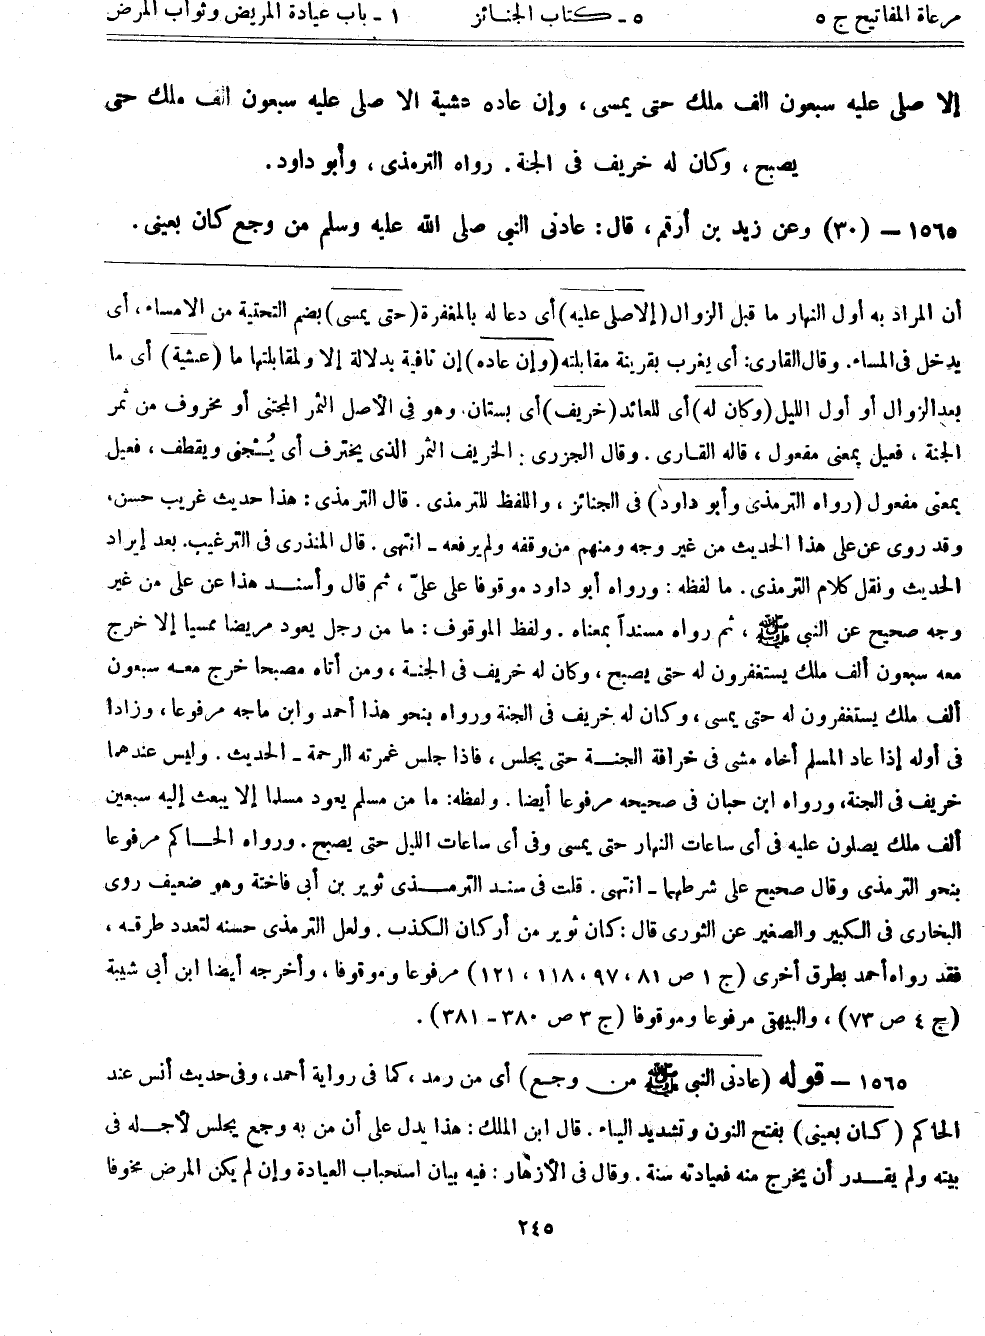 مرعاة المفاتيح ج ٥ ٥ ـ كتاب الجنائز ١ ـ باب عيادة المريض وثواب المرض
إلا صلى عليه سبعون الف ملك حتى يمسى ، وإن عاده عشية الا صلى عليه سبعون الف ملك حتى
يصبح ، وكان له خريف فى الجنة . رواه الترمذى ، وأبو داود .
١٥٦٥ – (٣٠) وعن زيد بن أرقم ، قال : عادنى النبى صلى الله عليه وسلم من وجع كان بعينى .
أن المراد به أول النهار ما قبل الزوال (إلا صلى عليه) أى دعا له بالمغفرة (حتى يمسى) بضم التحتية من الامساء ، أى
يدخل فى المساء . وقال القارى : أى يغرب بقرينة مقابلته (وإن عاده) إن نافية بدلالة إلا ولمقابلتها ما (عشية) أى ما
بعد الزوال أو أول الليل (وكان له) أى للعائد (خريف) أى بستان . وهو فى الأصل الثمر المجتنى أو مخروف من ثمر
الجنة ، فعيل بمعنى مفعول ، قاله القارى . وقال الجزرى : الخريف الثمر الذى يخترف أى يُجتنى ويقطف ، فعيل
بمعنى مفعول (رواه الترمذى وأبو داود) فى الجنائز ، واللفظ للترمذى . قال الترمذى : هذا حديث غريب حسن ،
وقد روى عن على هذا الحديث من غير وجه ومنهم من وقفه ولم يرفعه ـ انتهى . قال المنذرى فى الترغيب . بعد إيراد
الحديث ونقل كلام الترمذى . ما لفظه : ورواه أبو داود موقوفا على علىّ ، ثم قال وأسند هذا عن على من غير
وجه صحيح عن النبى ﷺ ، ثم رواه مسنداً بمعناه . ولفظ الموقوف : ما من رجل يعود مريضا ممسيا إلا خرج
معه سبعون ألف ملك يستغفرون له حتى يصبح ، وكان له خريف فى الجنة ، ومن أتاه مصبحا خرج معه سبعون
ألف ملك يستغفرون له حتى يمسى ، وكان له خريف فى الجنة ورواه بنحو هذا أحمد وابن ماجه مرفوعا ، وزادا
فى أوله إذا عاد المسلم أخاه مشى فى خرافة الجنة حتى يجلس ، فاذا جلس غمرته الرحمة ـ الحديث . وليس عندهما
خريف فى الجنة ، ورواه ابن حبان فى صحيحه مرفوعا أيضا . ولفظه : ما من مسلم يعود مسلما إلا يبعث إليه سبعين
ألف ملك يصلون عليه فى أى ساعات النهار حتى يمسى وفى أى ساعات الليل حتى يصبح . ورواه الحاكم مرفوعا
بنحو الترمذى وقال صحيح على شرطهما ـ انتهى . قلت فى سند الترمذى ثوير بن أبى فاختة وهو ضعيف روى
البخارى فى الكبير والصغير عن الثورى قال : كان ثوير من أركان الكذب . ولعل الترمذى حسنه لتعدد طرقه ،
فقد رواه أحمد بطرق أخرى (ج ١ ص ٨١ ، ٩٧ ، ١١٨ ، ١٢١) مرفوعا وموقوفا ، وأخرجه أيضا ابن أبى شيبة
(ج ٤ ص ٧٣) ، والبيهقى مرفوعا وموقوفا (ج ٣ ص ٣٨٠ ـ ٣٨١) .
١٥٦٥ – قوله (عادنى النبى ﷺ من وجع) أى من رمد ، كما فى رواية أحمد ، وفى حديث أنس عند
الحاكم (كان بعينى) بفتح النون وتشديد الياء . قال ابن الملك : هذا يدل على أن من به وجع يجلس لأجله فى
بيته ولم يقدر أن يخرج منه فعيادته سنة . وقال فى الأزهار : فيه بيان استحباب العيادة وإن لم يكن المرض مخوفا
٢٤٥